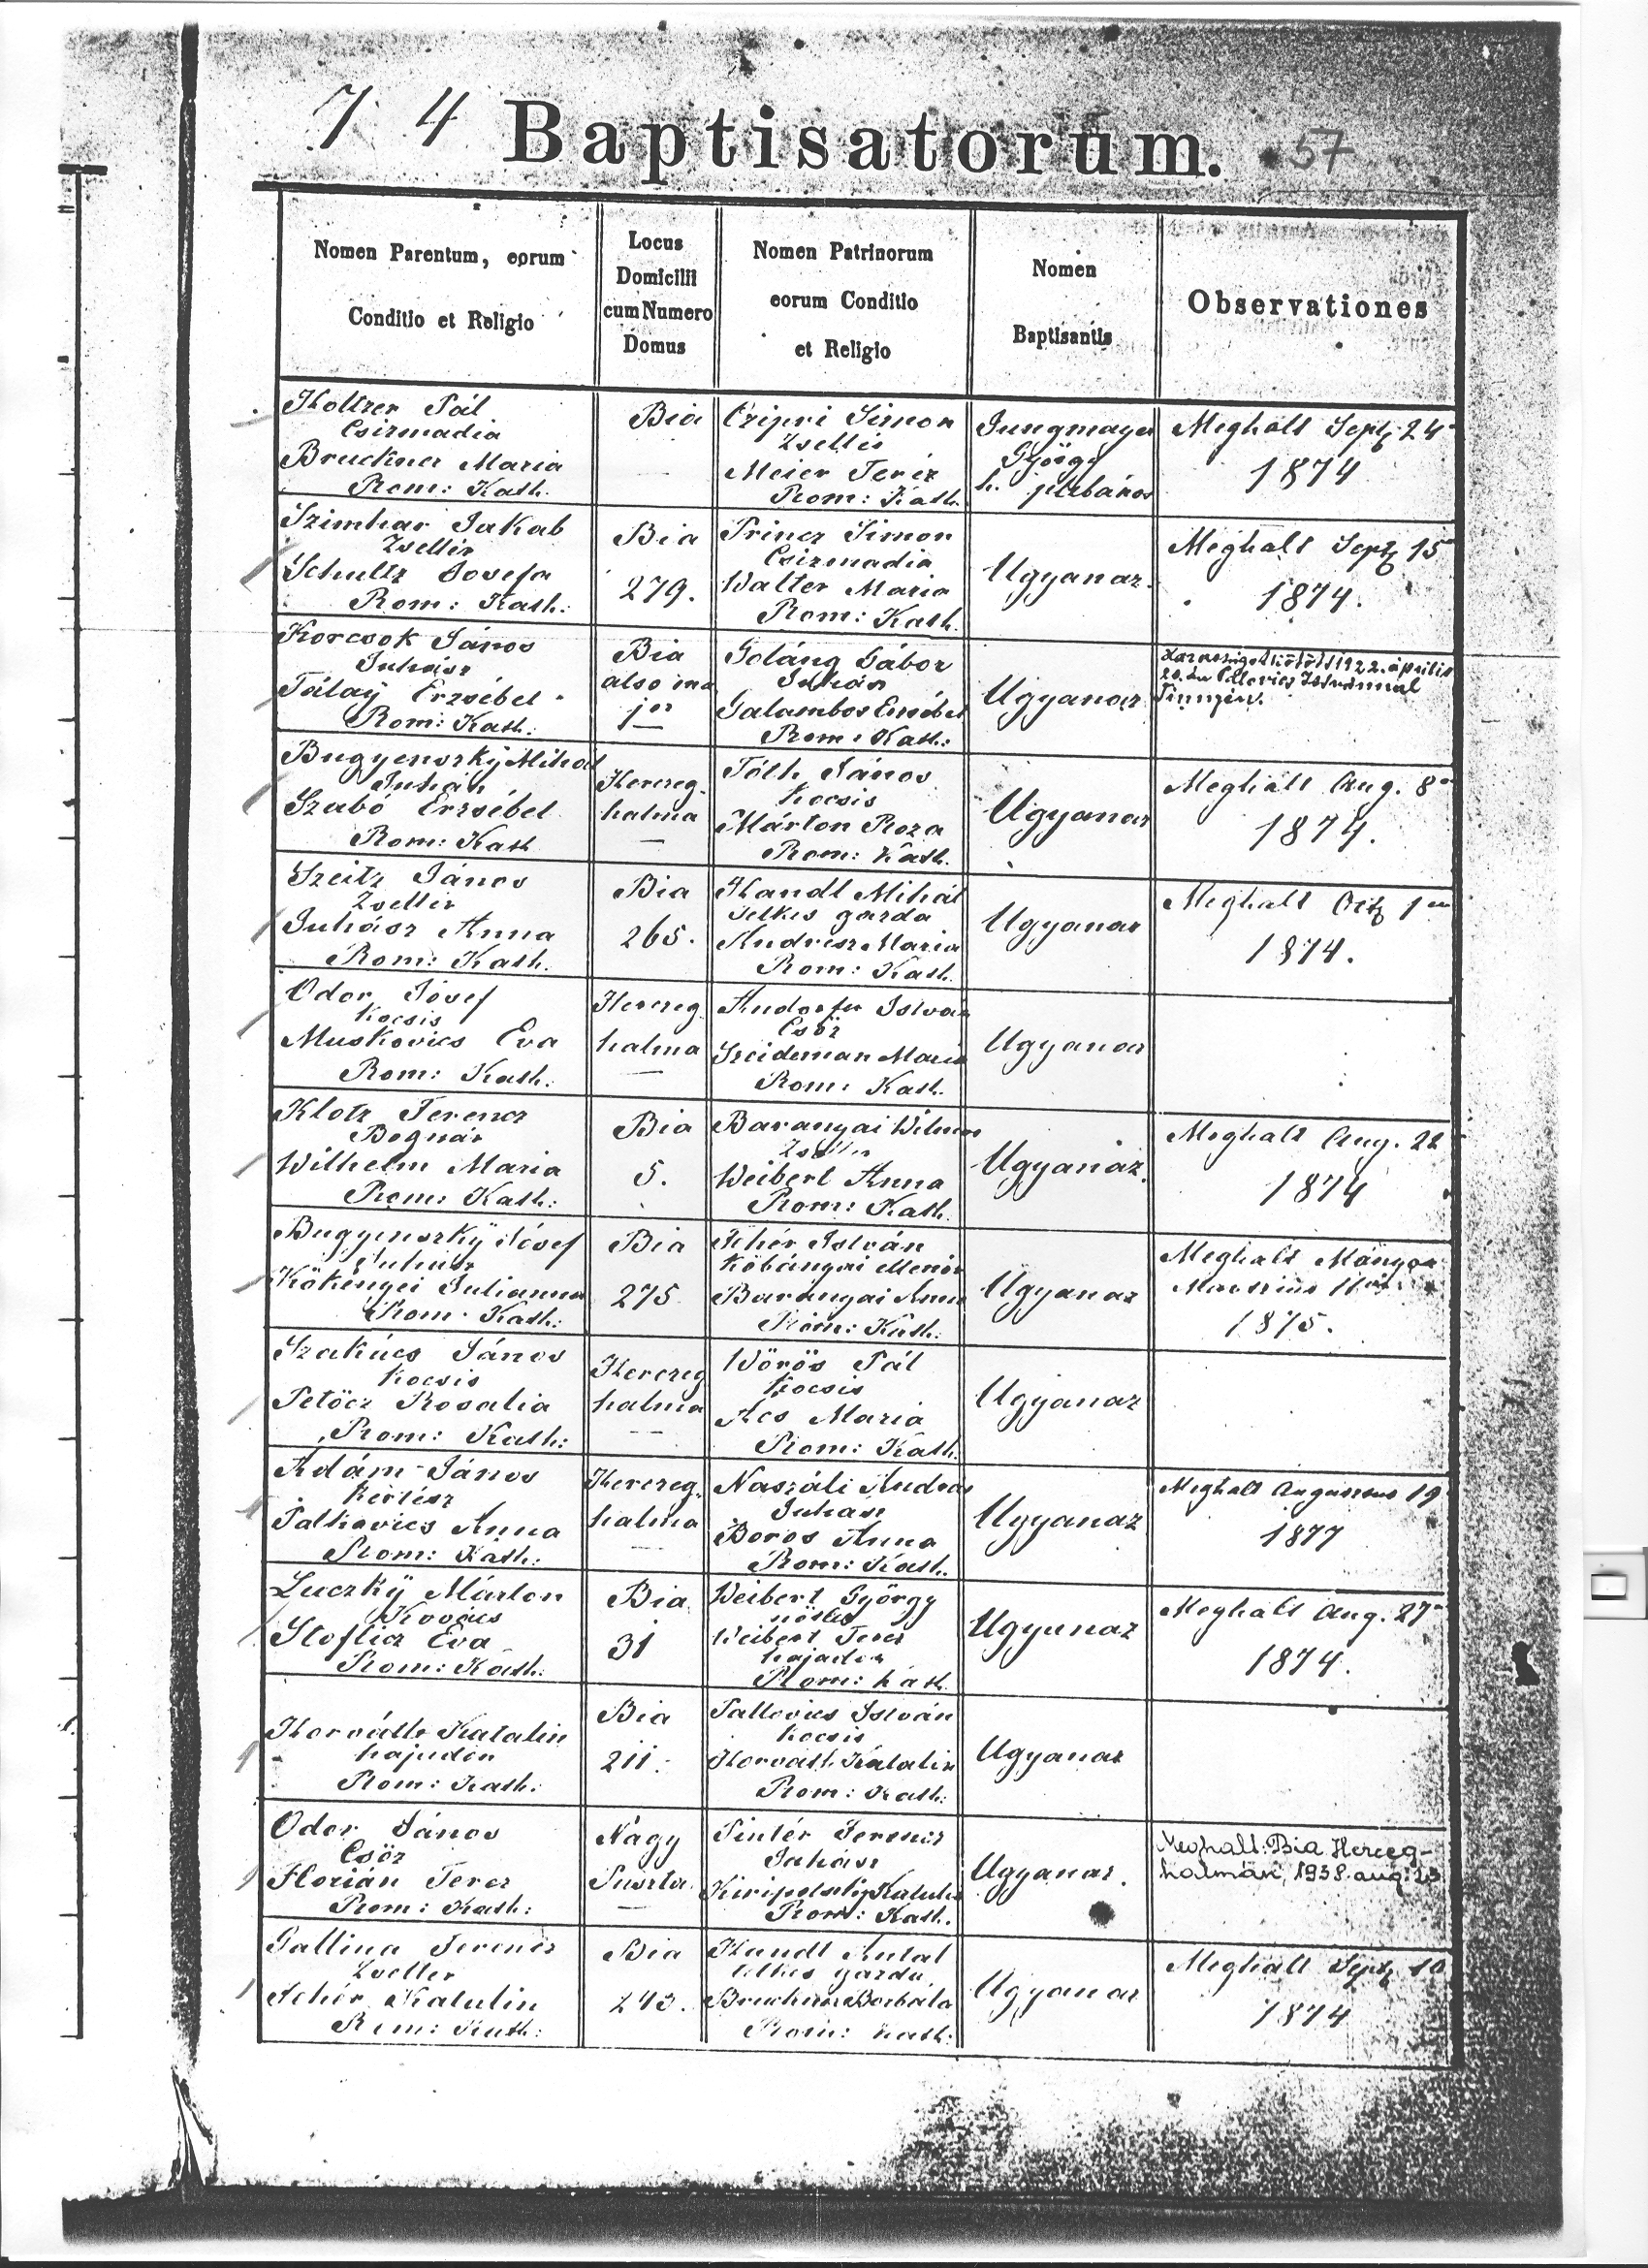 74 Baptisatorum. 57
Nomen Parentum, eorum
Conditio et Religio
Locus
Domicilii
cum Numero
Domus
Nomen Patrinorum
eorum Conditio
et Religio
Nomen
Baptisantis
Observationes
Holtzer Pál
Csizmadia
Bruckner Maria
Rom: Kath.
Bia
Simon
Zsellér
Meier Teréz
Rom: Kath.
Jungmayer
György
h. plebános
Meghalt Sept 24
1874
Szimhar Jakab
Zsellér
Schultz Josefa
Rom: Kath:
Bia
279.
Princz Simon
Csizmadia
Walter Maria
Rom: Kath.
Ugyanaz.
Meghalt Sept 15
1874.
Korcsok János
Juhász
Tálaÿ Erzsébet
Rom: Kath:
Bia
also ma
jor
Goláng Gábor
Juhász
Galambos Erzsébet
Rom: Kath:
Ugyanaz
Házasságot kötött 1922. április
20.án Istvánnal
Bugyenszkÿ Mihál
Juhász
Szabó Erzsébet
Rom: Kath
Herczeg
halma
Tóth János
Kocsis
Márton Roza
Rom: Kath.
Ugyanaz
Meghalt Aug. 8
1874.
Szeitz János
Zsellér
Juhász Anna
Rom: Kath.
Bia
265.
Handl Mihál
Telkes gazda
Andresz Maria
Rom: Kath.
Ugyanaz
Meghalt Oct 1
1874.
Odor Jósef
Kocsis
Muskovics Eva
Rom: Kath:
Herczeg
halma
Andorfer Istvan
Csősz
Szeideman Maria
Rom: Kath.
Ugyanaz
Klotz Ferencz
Bognár
Wilhelm Maria
Rom: Kath:
Bia
5.
Baranyai Wilmos
Zsellér
Weibert Anna
Rom: Kath.
Ugyanaz.
Meghalt Aug. 22
1874
Bugyenszkÿ Jósef
Juhász
Kökényei Julianna
Rom: Kath:
Bia
275
Fehér István
Kőbányai
Baranyai Anna
Rom: Kath:
Ugyanaz
Meghalt
Martius 11
1875.
Szakács János
Kocsis
Petöcz Rosalia
Rom: Kath:
Herczeg
halma
Wörös Pál
Kocsis
Acs Maria
Rom: Kath.
Ugyanaz
Adám János
Kertész
Palkovics Anna
Rom: Kath:
Herczeg
halma
Naszáli András
Juhász
Boros Anna
Rom: Kath.
Ugyanaz
Meghalt Augustus 19
1877
Luczkÿ Márton
Kovács
Stoflicz Eva
Rom: Kath:
Bia
31
Weibert György
nőtlen
Weibert Terez
hajadon
Rom: Kath
Ugyanaz
Meghalt Aug. 27
1874.
Horváth Katalin
hajadon
Rom: Kath:
Bia
211.
Pallovics István
Kocsis
Horváth Katalin
Rom: Kath:
Ugyanaz
Odor János
Csősz
Florián Terez
Rom: Kath:
Nagy
Puszta
Pintér Ferencz
Juhász
Katalin
Rom: Kath.
Ugyanaz.
Meghalt: Bia Herceg-
halmán, 1938. aug: 23
Gallina Ferencz
Zseller
Fehér Katalin
Rom: Kath:
Bia
243.
Handl Antal
telkes gazda
Bruckner Borbala
Rom: Kath:
Ugyanaz
Meghalt Sept 10
1874